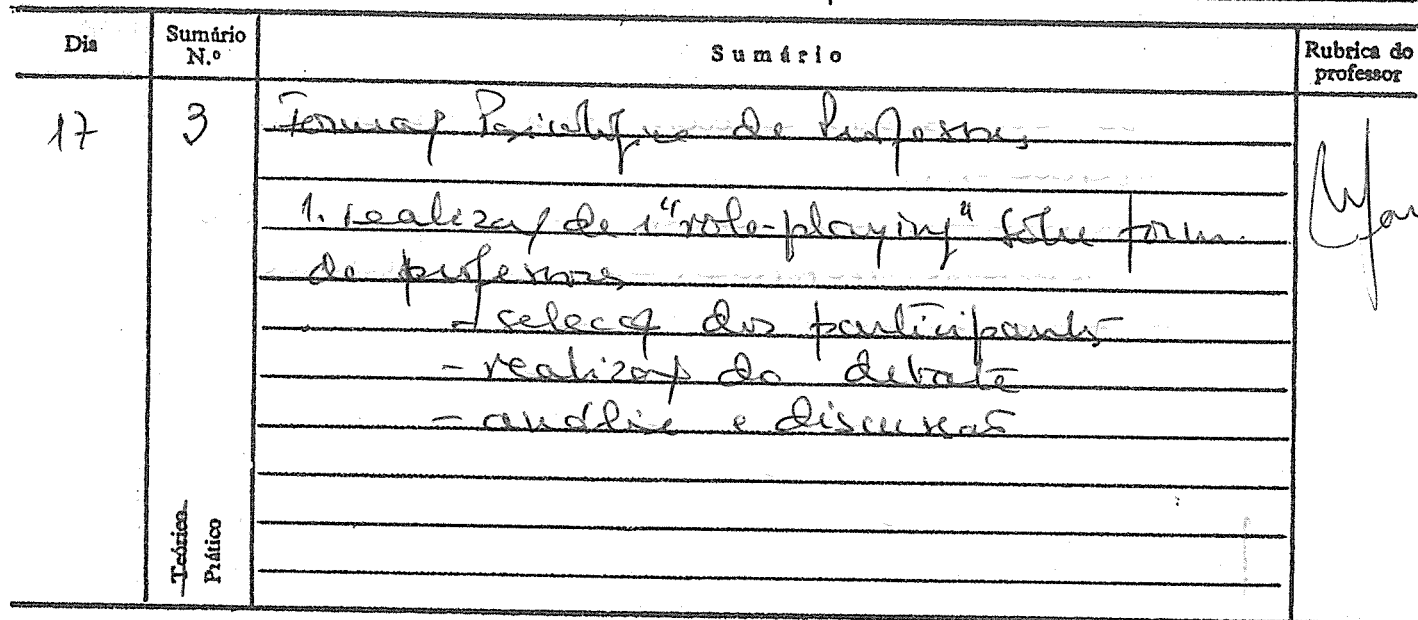 Dia Sumário N.º Sumário Rubrica do professor
17 3 Formaç Psicológica de Professores
1. realizaç de 1 "role-playing" sobre form.
de professores
- selecç dos participantes
- realizaç do debate
- análise e discussão
Teórico
Prático